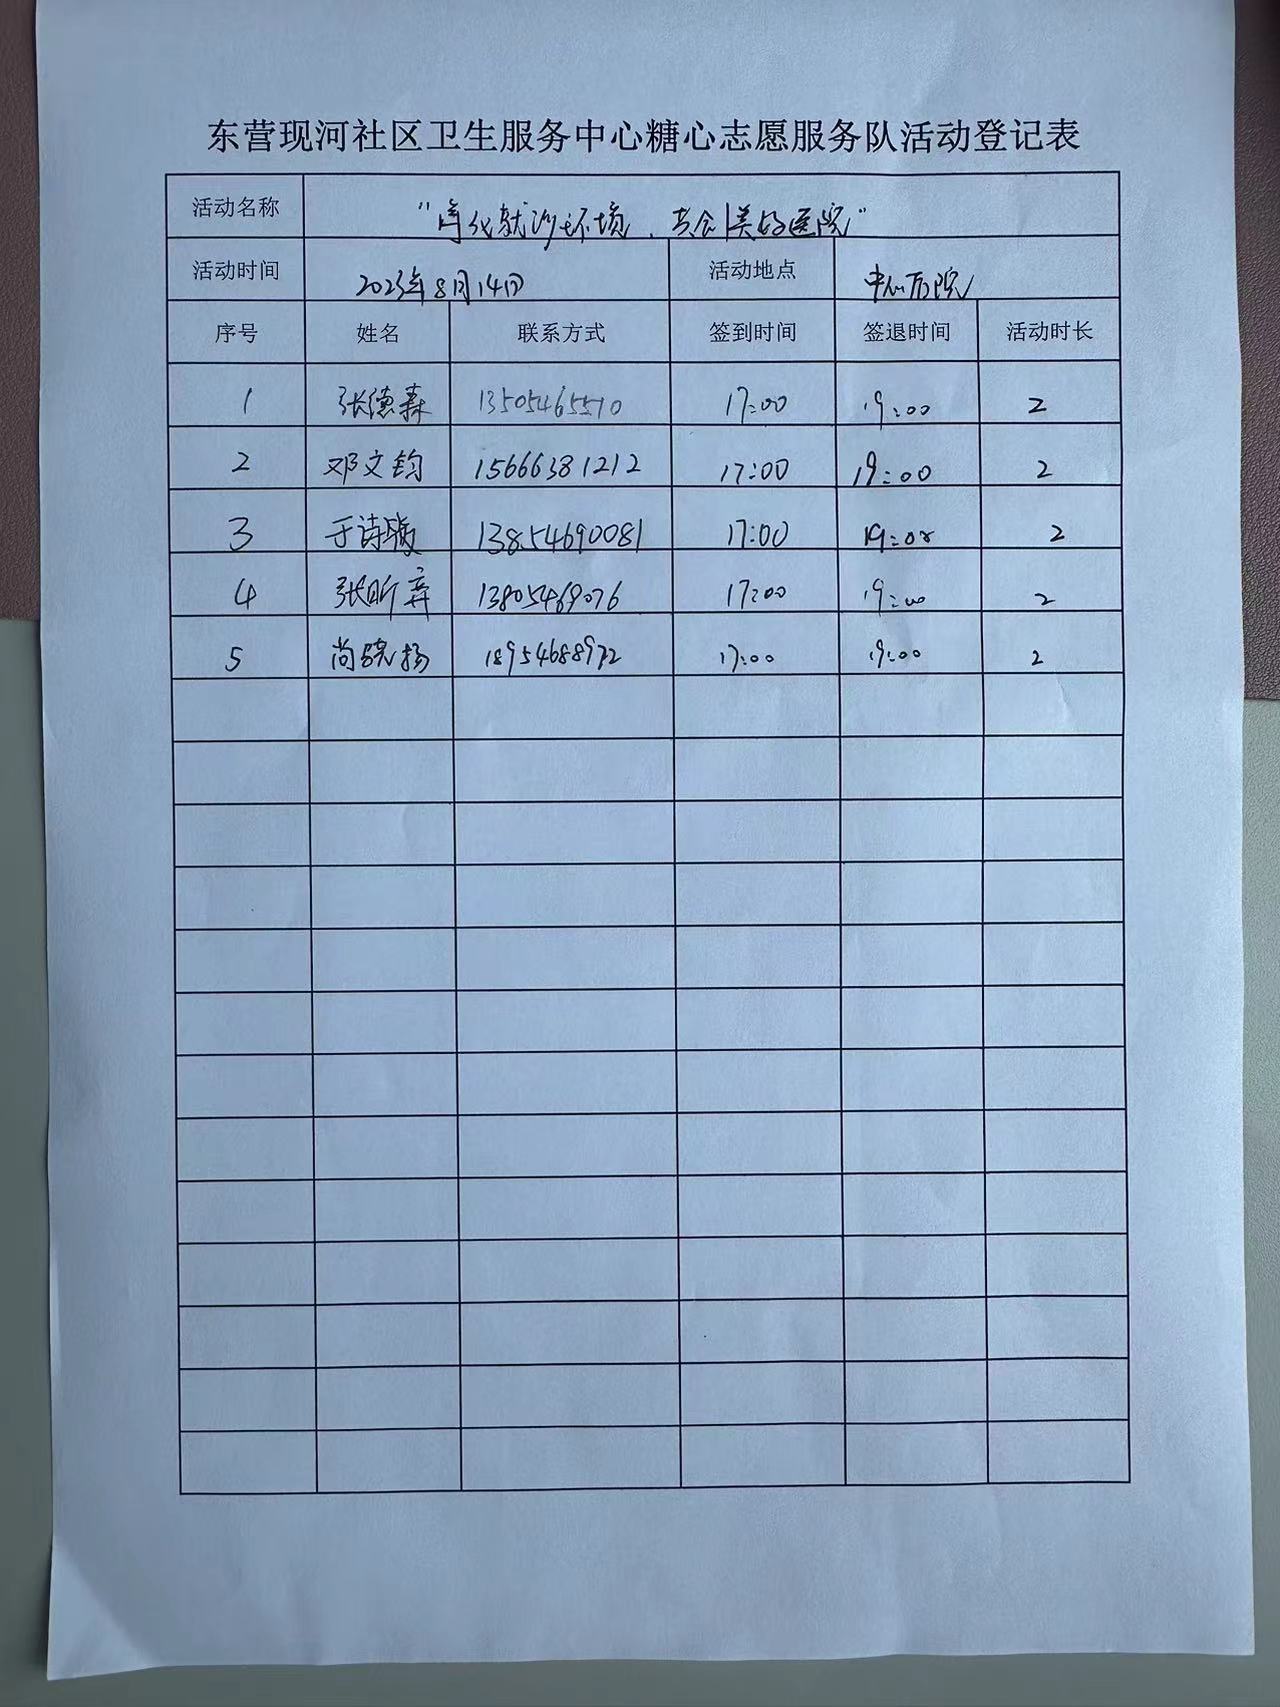 东营现河社区卫生服务中心糖心志愿服务队活动登记表
活动名称 "优化就诊环境、共创美好医院"
活动时间 2023年8月14日 活动地点 中心医院
序号 姓名 联系方式 签到时间 签退时间 活动时长
1 张德森 13505465510 17:00 19:00 2
2 邓文钧 15666381212 17:00 19:00 2
3 于诗璇 13854690081 17:00 19:00 2
4 张昕弈 13805469076 17:00 19:00 2
5 尚晓扬 18954688972 17:00 19:00 2